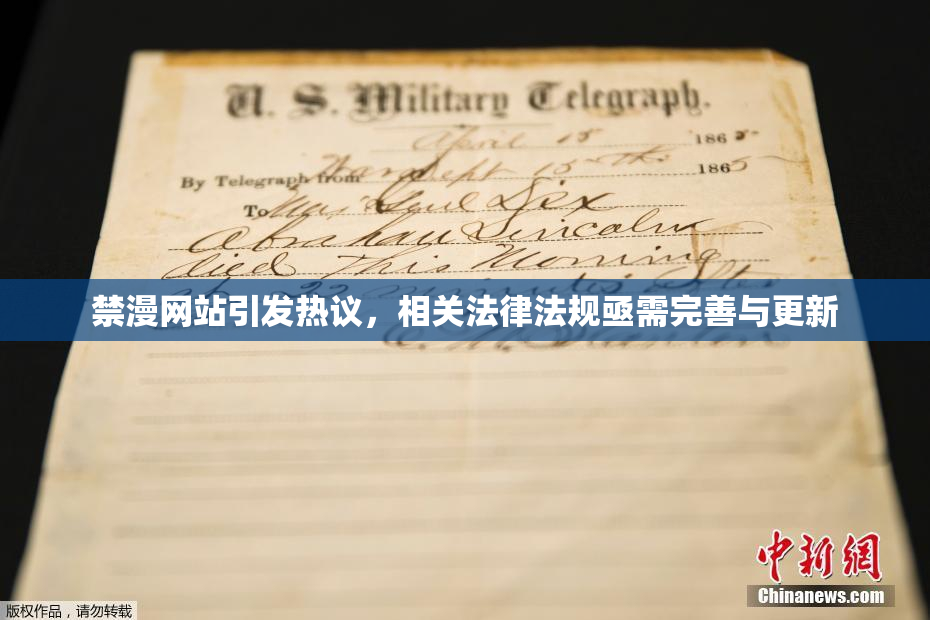 U. S. Military Telegraph.
April 15 1865
By Telegraph from War Dept 15th 1865
To Maj Genl Dix
Abraham Lincoln
died This Morning
at 22 minutes after
禁漫网站引发热议，相关法律法规亟需完善与更新
E. M. Stanton
中新网
Chinanews.com
版权作品，请勿转载